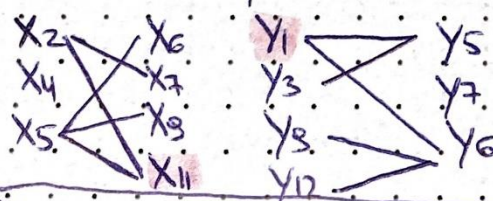 X2 X6 Y1 Y5
X4 X7 Y3 Y7
X5 X9 Y9 Y6
X11 Y12